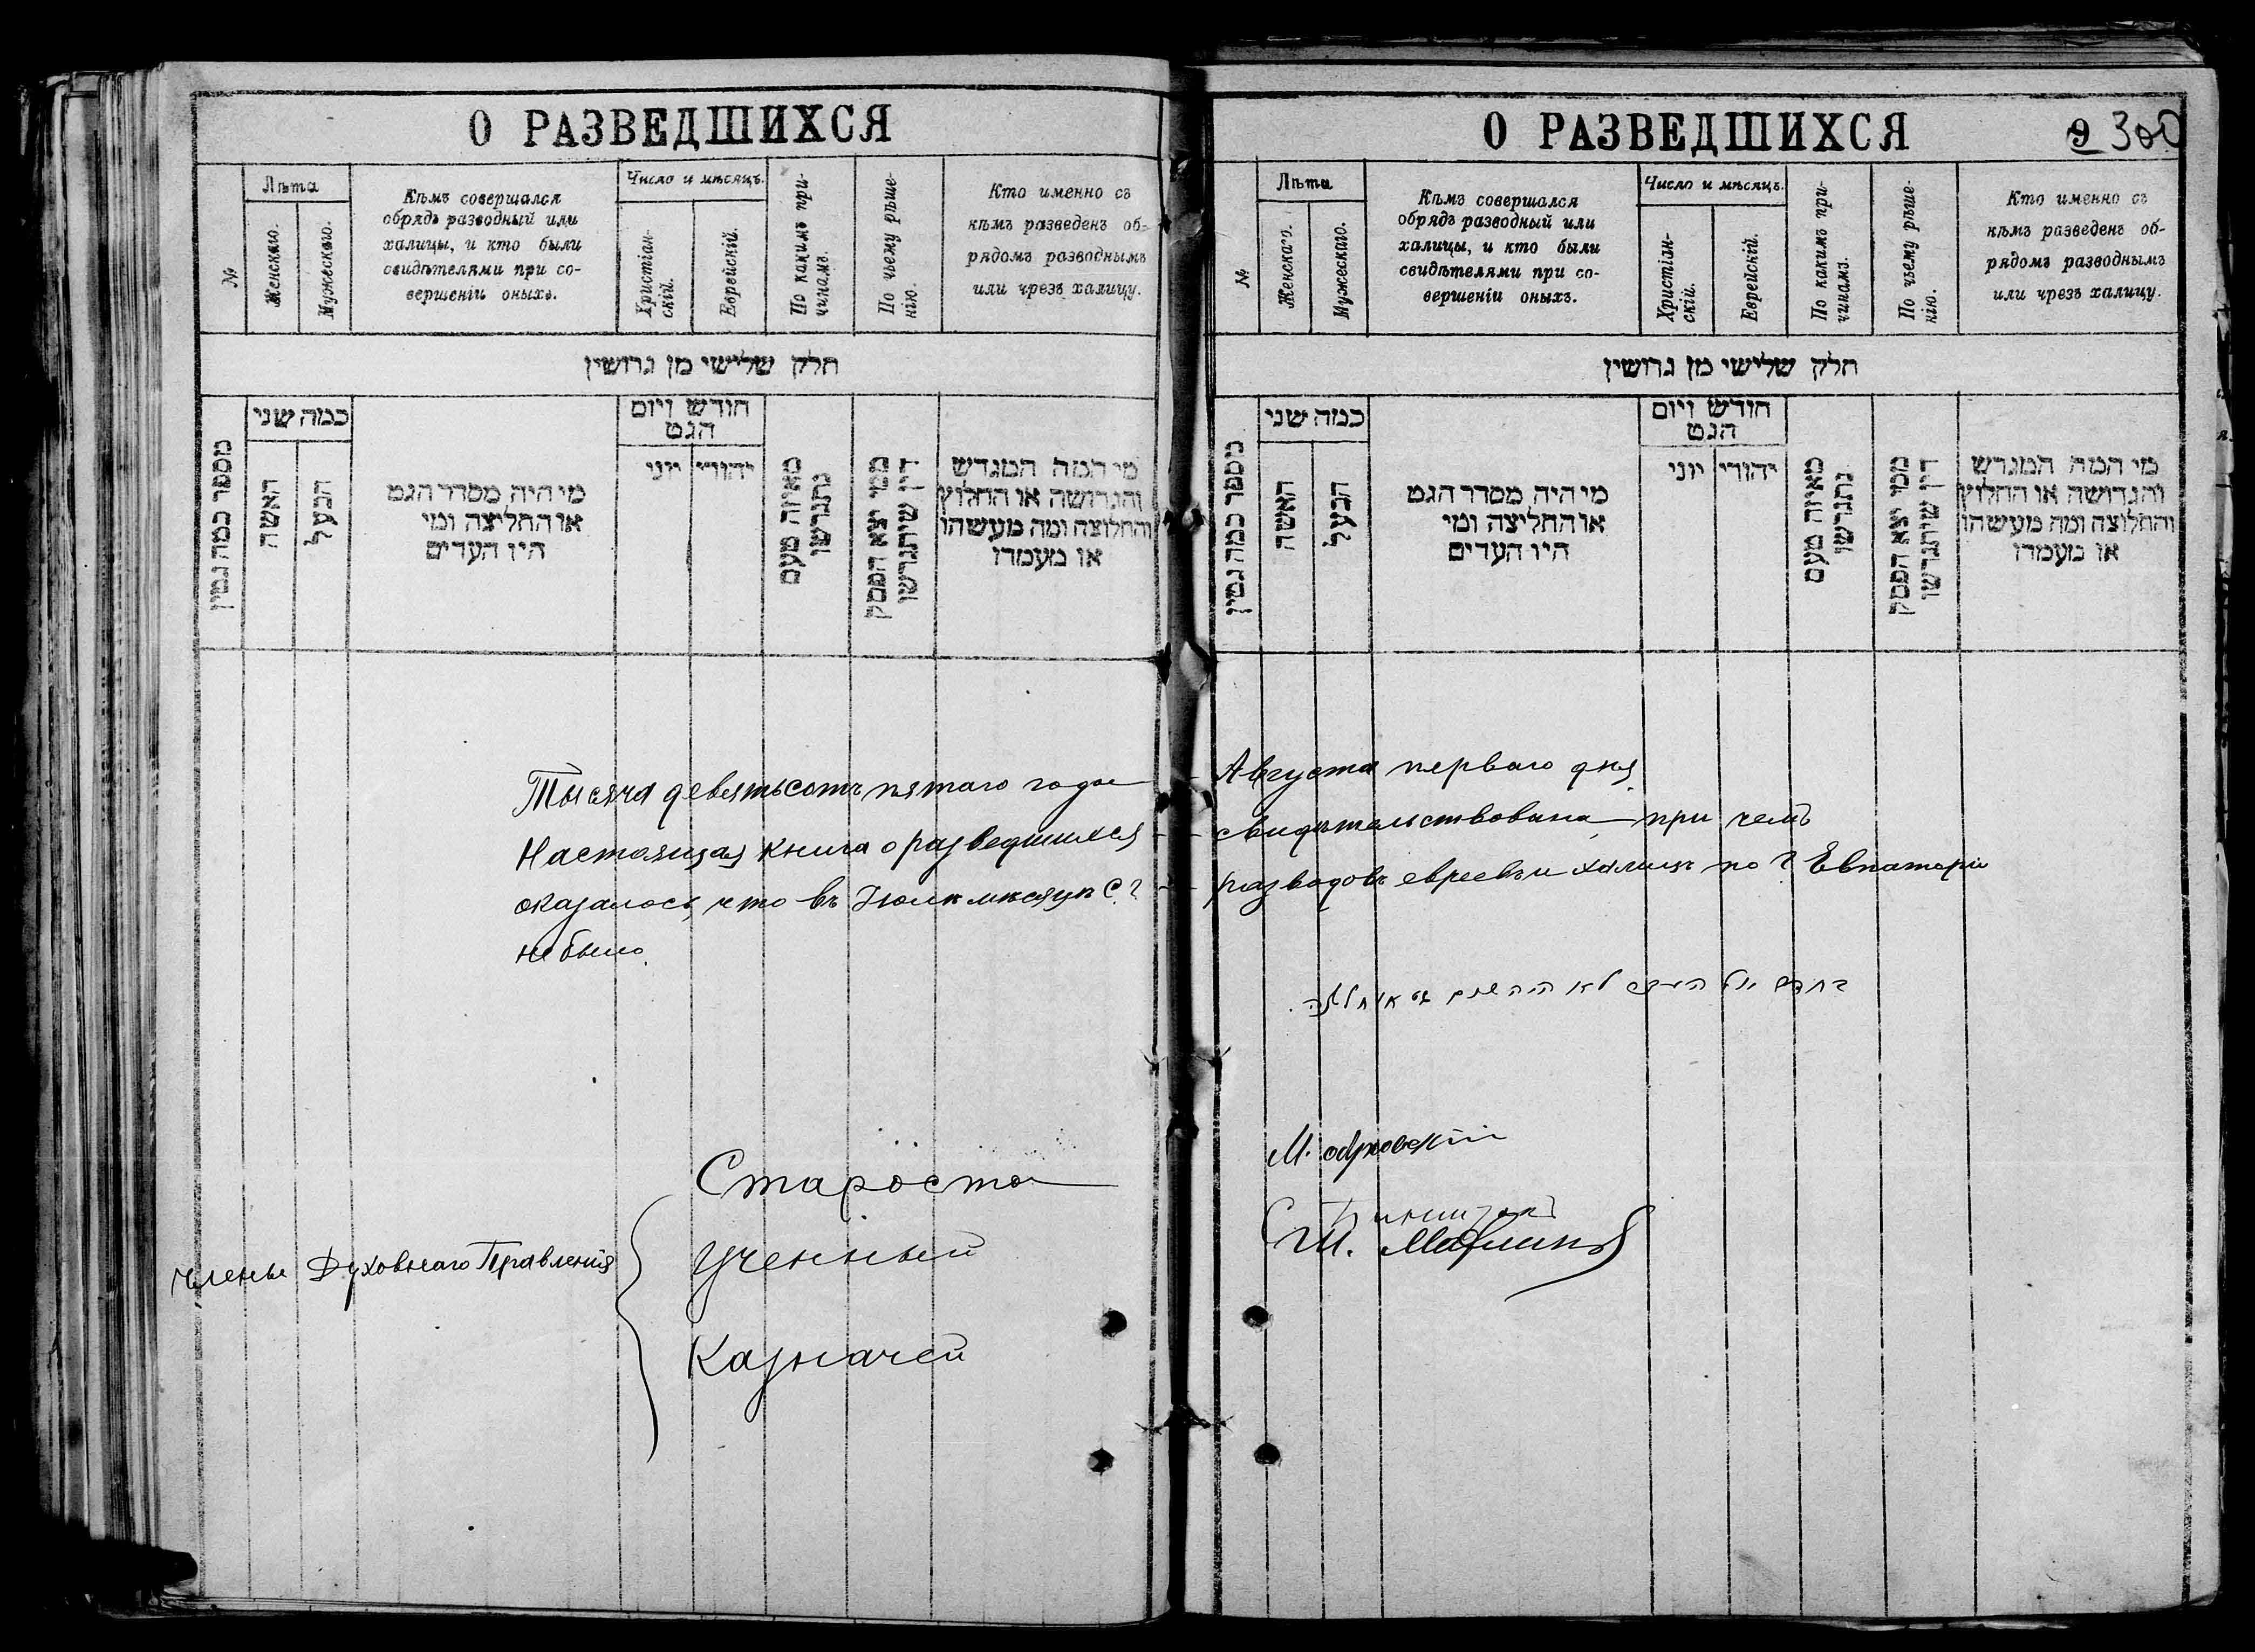 О РАЗВЕДШИХСЯ
№
Лѣта
Женскаго.
Мужескаго.
Кѣмъ совершался
обрядъ разводный или
халицы, и кто были
свидѣтелями при со-
вершеніи оныхъ.
Число и мѣсяцъ.
Христіан-
скій.
Еврейскій.
По какимъ при-
чинамъ.
По чьему рѣше-
нію.
Кто именно съ
кѣмъ разведенъ об-
рядомъ разводнымъ
или чрезъ халицу.
חלק שלישי מן גרושין
מספר כמה גטין
כמה שני
האשה
הבעל
מי היה מסדר הגט
או החליצה ומי
היו העדים
חודש ויום
הגט
יהודי
יוני
מאיזה טעם
נתגרשו
ממי יצא הפסק
דין שיתגרשו
מי המה המגרש
והגרושה או החלוץ
והחלוצה ומה מעשהו
או מעמדו
Тысяча девятьсотъ пятаго года
Настоящая книга о разведшихся
оказалось, что въ Іюлѣ мѣсяцѣ с. г.
не было.
Члены Духовнаго Правленія
Староста
Ученый
Казначей
О РАЗВЕДШИХСЯ
9 300
№
Лѣта
Женскаго.
Мужескаго.
Кѣмъ совершался
обрядъ разводный или
халицы, и кто были
свидѣтелями при со-
вершеніи оныхъ.
Число и мѣсяцъ.
Христіан-
скій.
Еврейскій.
По какимъ при-
чинамъ.
По чьему рѣше-
нію.
Кто именно съ
кѣмъ разведенъ об-
рядомъ разводнымъ
или чрезъ халицу.
חלק שלישי מן גרושין
מספר כמה גטין
כמה שני
האשה
הבעל
מי היה מסדר הגט
או החליצה ומי
היו העדים
חודש ויום
הגט
יהודי
יוני
מאיזה טעם
נתגרשו
ממי יצא הפסק
דין שיתגרשו
מי המה המגרש
והגרושה או החלוץ
והחלוצה ומה מעשהו
או מעמדו
Августа перваго дня
свидѣтельствована, при чемъ
разводовъ евреевъ и халицъ по г. Евпаторіи
לא היה שום גט או חליצה.
М.
Ш.